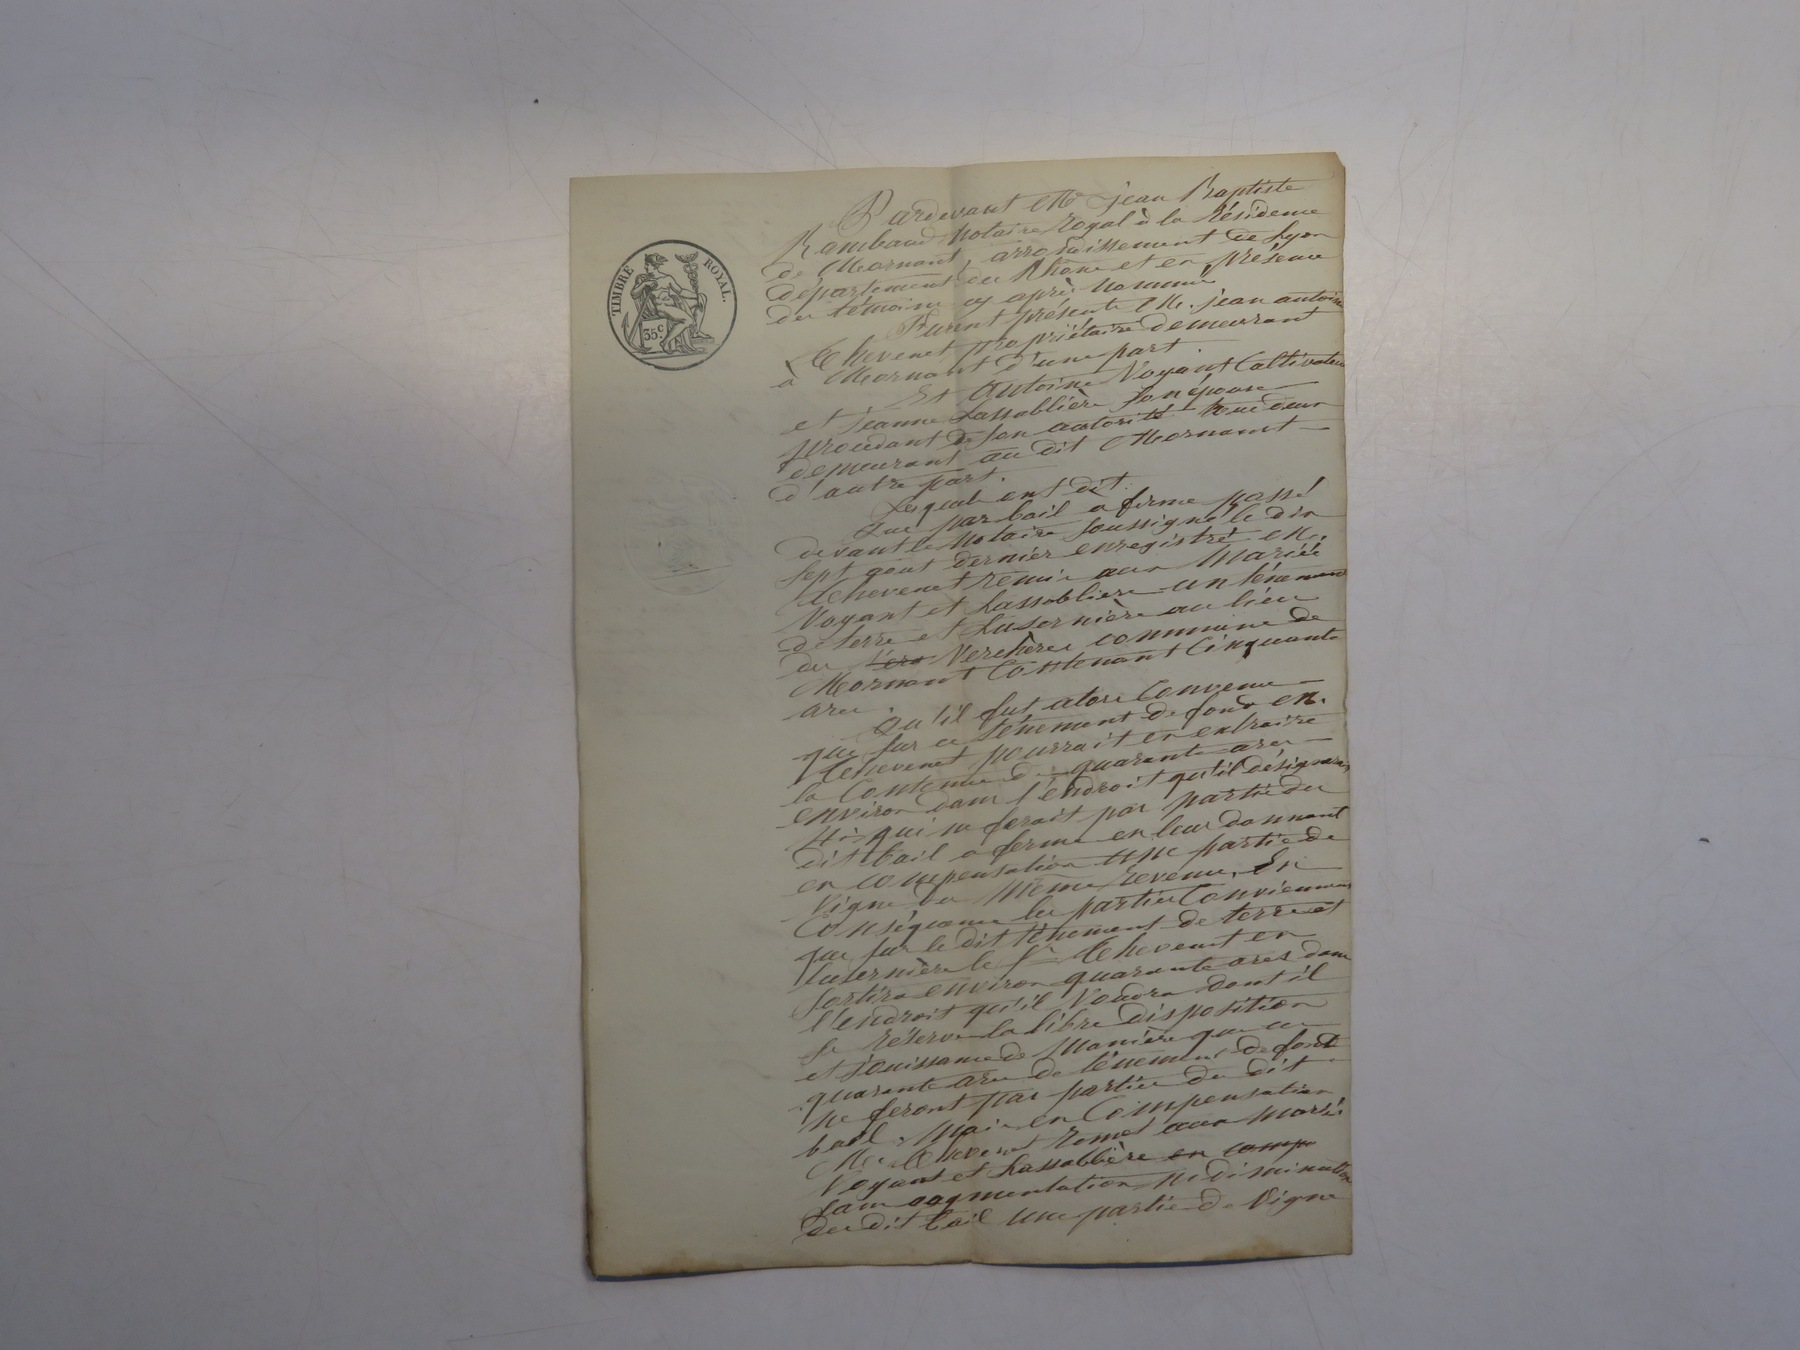 TIMBRE ROYAL.
35c.
Pardevant Me jean Baptiste
Rambaud Notaire royal à la résidence
de Mornant, arrondissement de Lyon
département du Rhône et en présence
des témoins cy après nommés
Furent présents M. jean antoine
Thevenet propriétaire demeurant
à Mornant d'une part.
Et Antoine Voyant Cultivateur
et jeanne Lassablière son épouse
procédant de son autorité tous deux
demeurant au dit Mornant
d'autre part.
Lesquels ont dit:
Que par bail a ferme passé
devant le Notaire soussigné le dix
sept aout dernier enregistré M.
Thevenet remis aux mariés
Voyant et Lassablière un ténement
de terre et Lusernière au lieu
du Verchères commune de
Mornant Contenant Cinquante
ares.
Qu'il fut alors Convenu
que sur ce ténement de fond M.
Thevenet pourrait en extraire
la Contenue de quarante ares
environ dans l'endroit qu'il désignerait
qui ne ferait pas partie du
dit bail a ferme en leur donnant
en compensation une partie de
Vigne du même revenu. En
Conséquence les parties Conviennent
que sur le dit ténement de terre et
lusernière le Sr Thevenet en
sortira environ quarante ares dans
l'endroit qu'il Voudra dont il
se réserve la libre disposition
et jouissance de manière que ces
quarante ares de ténement de fond
ne feront pas partie du dit
bail, mais en Compensation
M. Thevenet remet aux mariés
Voyant et Lassablière en comp
sans augmentation ni diminution
du dit bail une partie de Vigne